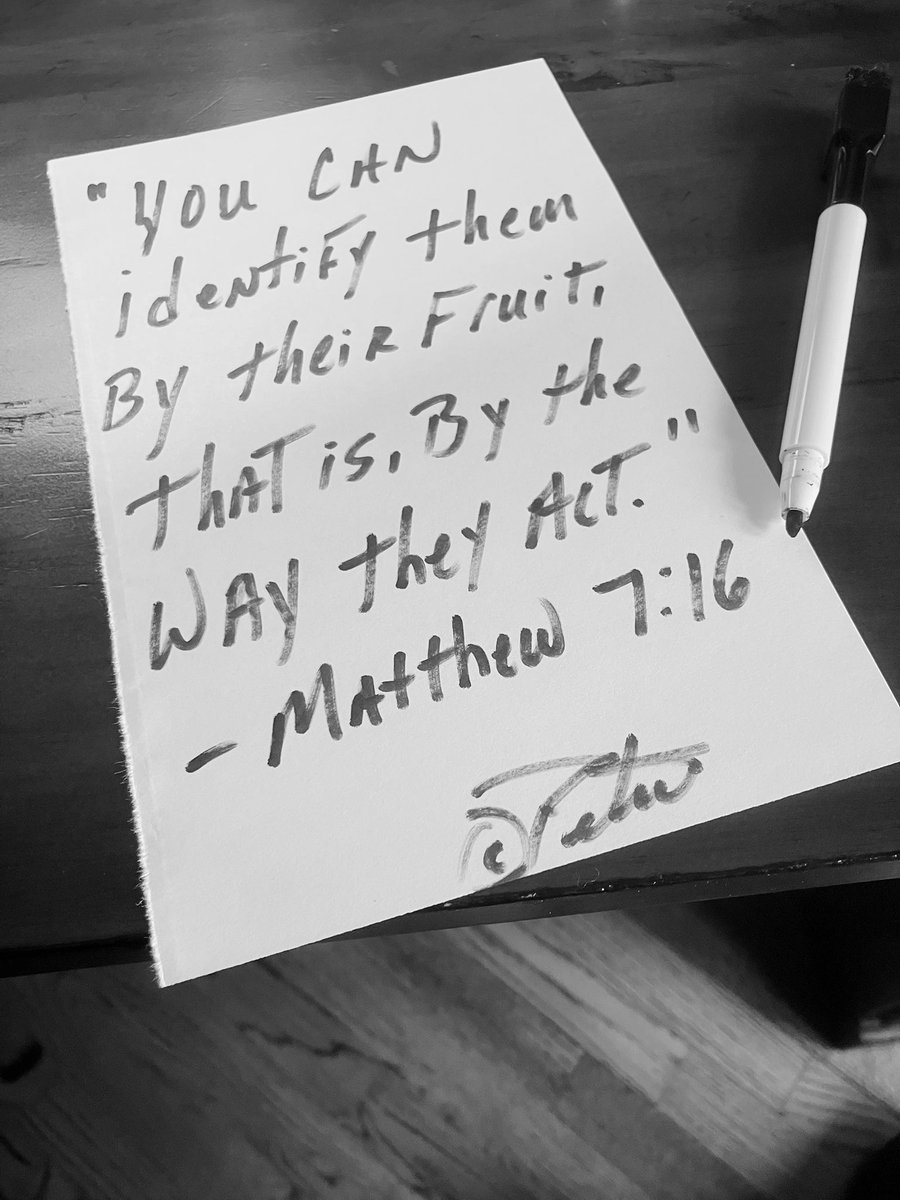 "YOU CAN
identify them
By their Fruit,
that is, By the
WAY they Act."
- Matthew 7:16